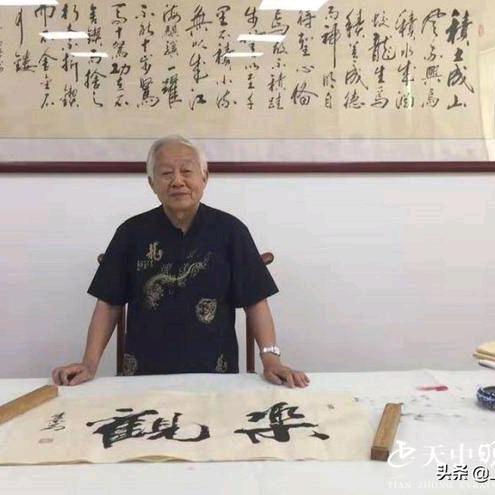 積土成山
風雨興焉
積水成淵
蛟龍生焉
積善成德
而神明自
得聖心備
焉故不積跬
步無以至千
里不積小流
無以成江
海騏驥一躍
不能十步駑
馬十駕功在不
舍鍥而捨之
朽木不折鍥
而不舍金石
可鏤
樂觀
天中晚
TIAN ZHONG EVENI
头条 @上